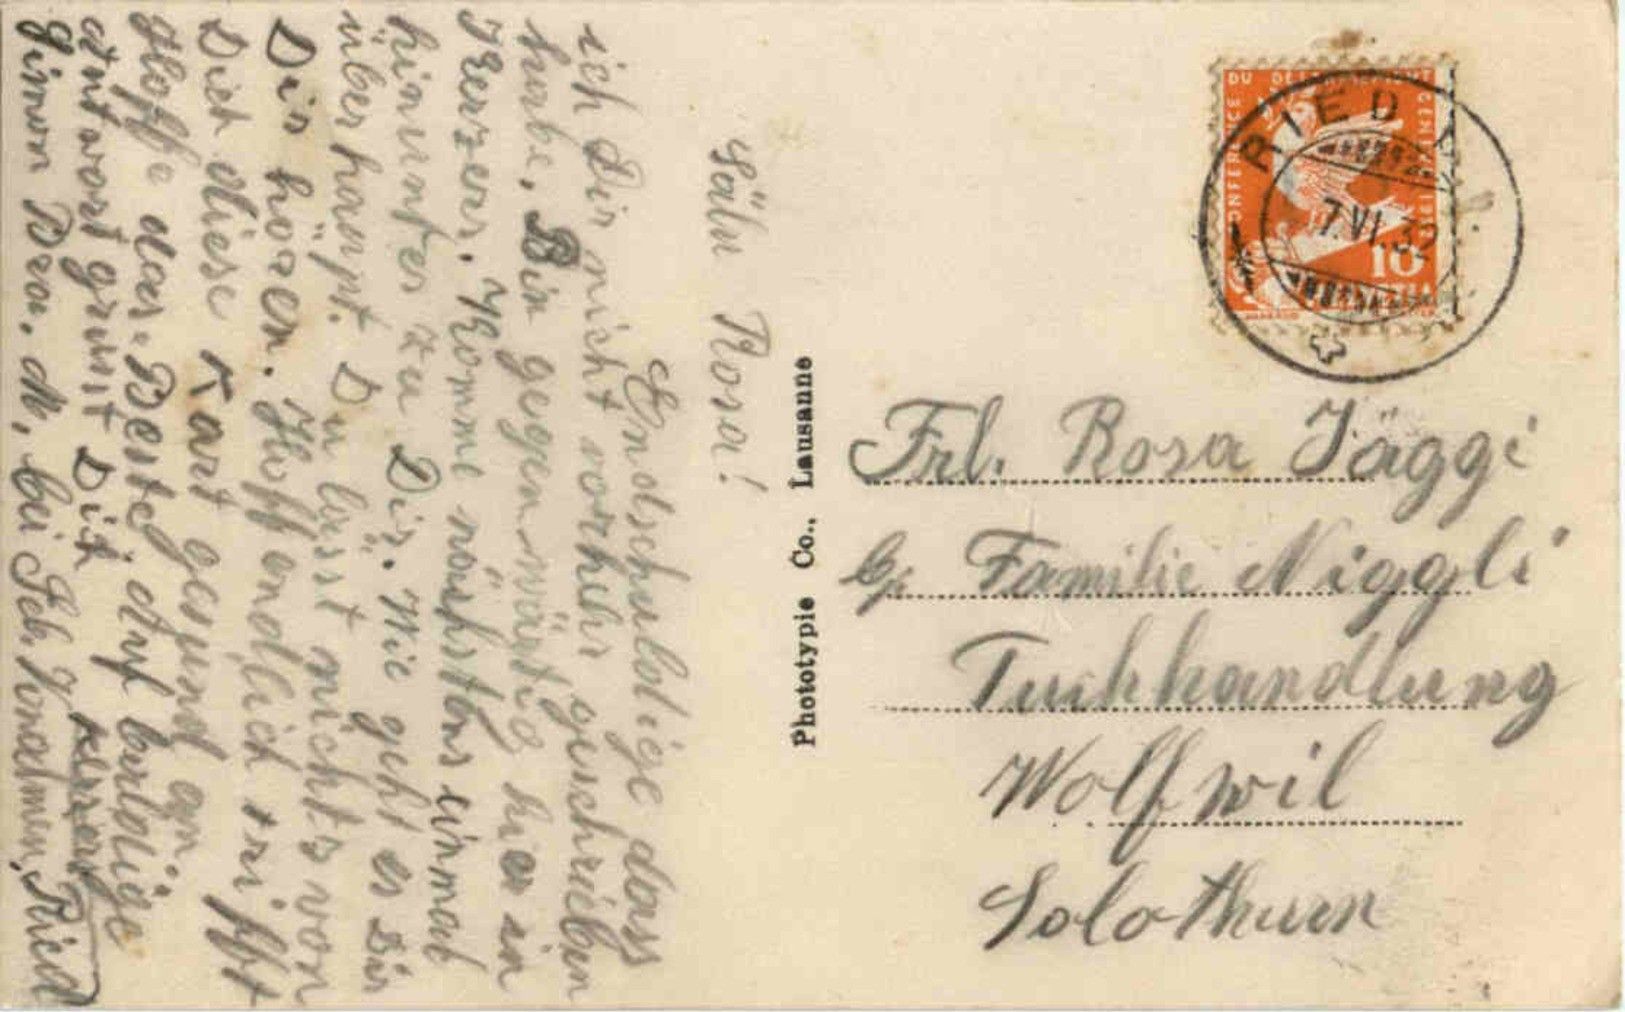 Sälü Rosa!
Endschuldige dass
ich Dir nicht vorher geschrieben
habe. Bin gegenwärtig hier in
Kerzers. Komme nächstens einmal
hinunter zu Dir. Wie geht es Dir
überhaupt. Du lässt nichts von
Dir hören. Hoffendlich trifft
Dich diese Kart gesund an.
Hoffe das Beste, auf baldige
Antwort grüsst Dich
bei Geb. Ried
Phototypie Co., Lausanne
CONFERENCE DU DESARMEMENT
GENEVE 1932
10
RIED
7.VI.32
Frl. Rosa Jäggi
Familie Niggli
Tuchhandlung
Wolfwil
Solothurn